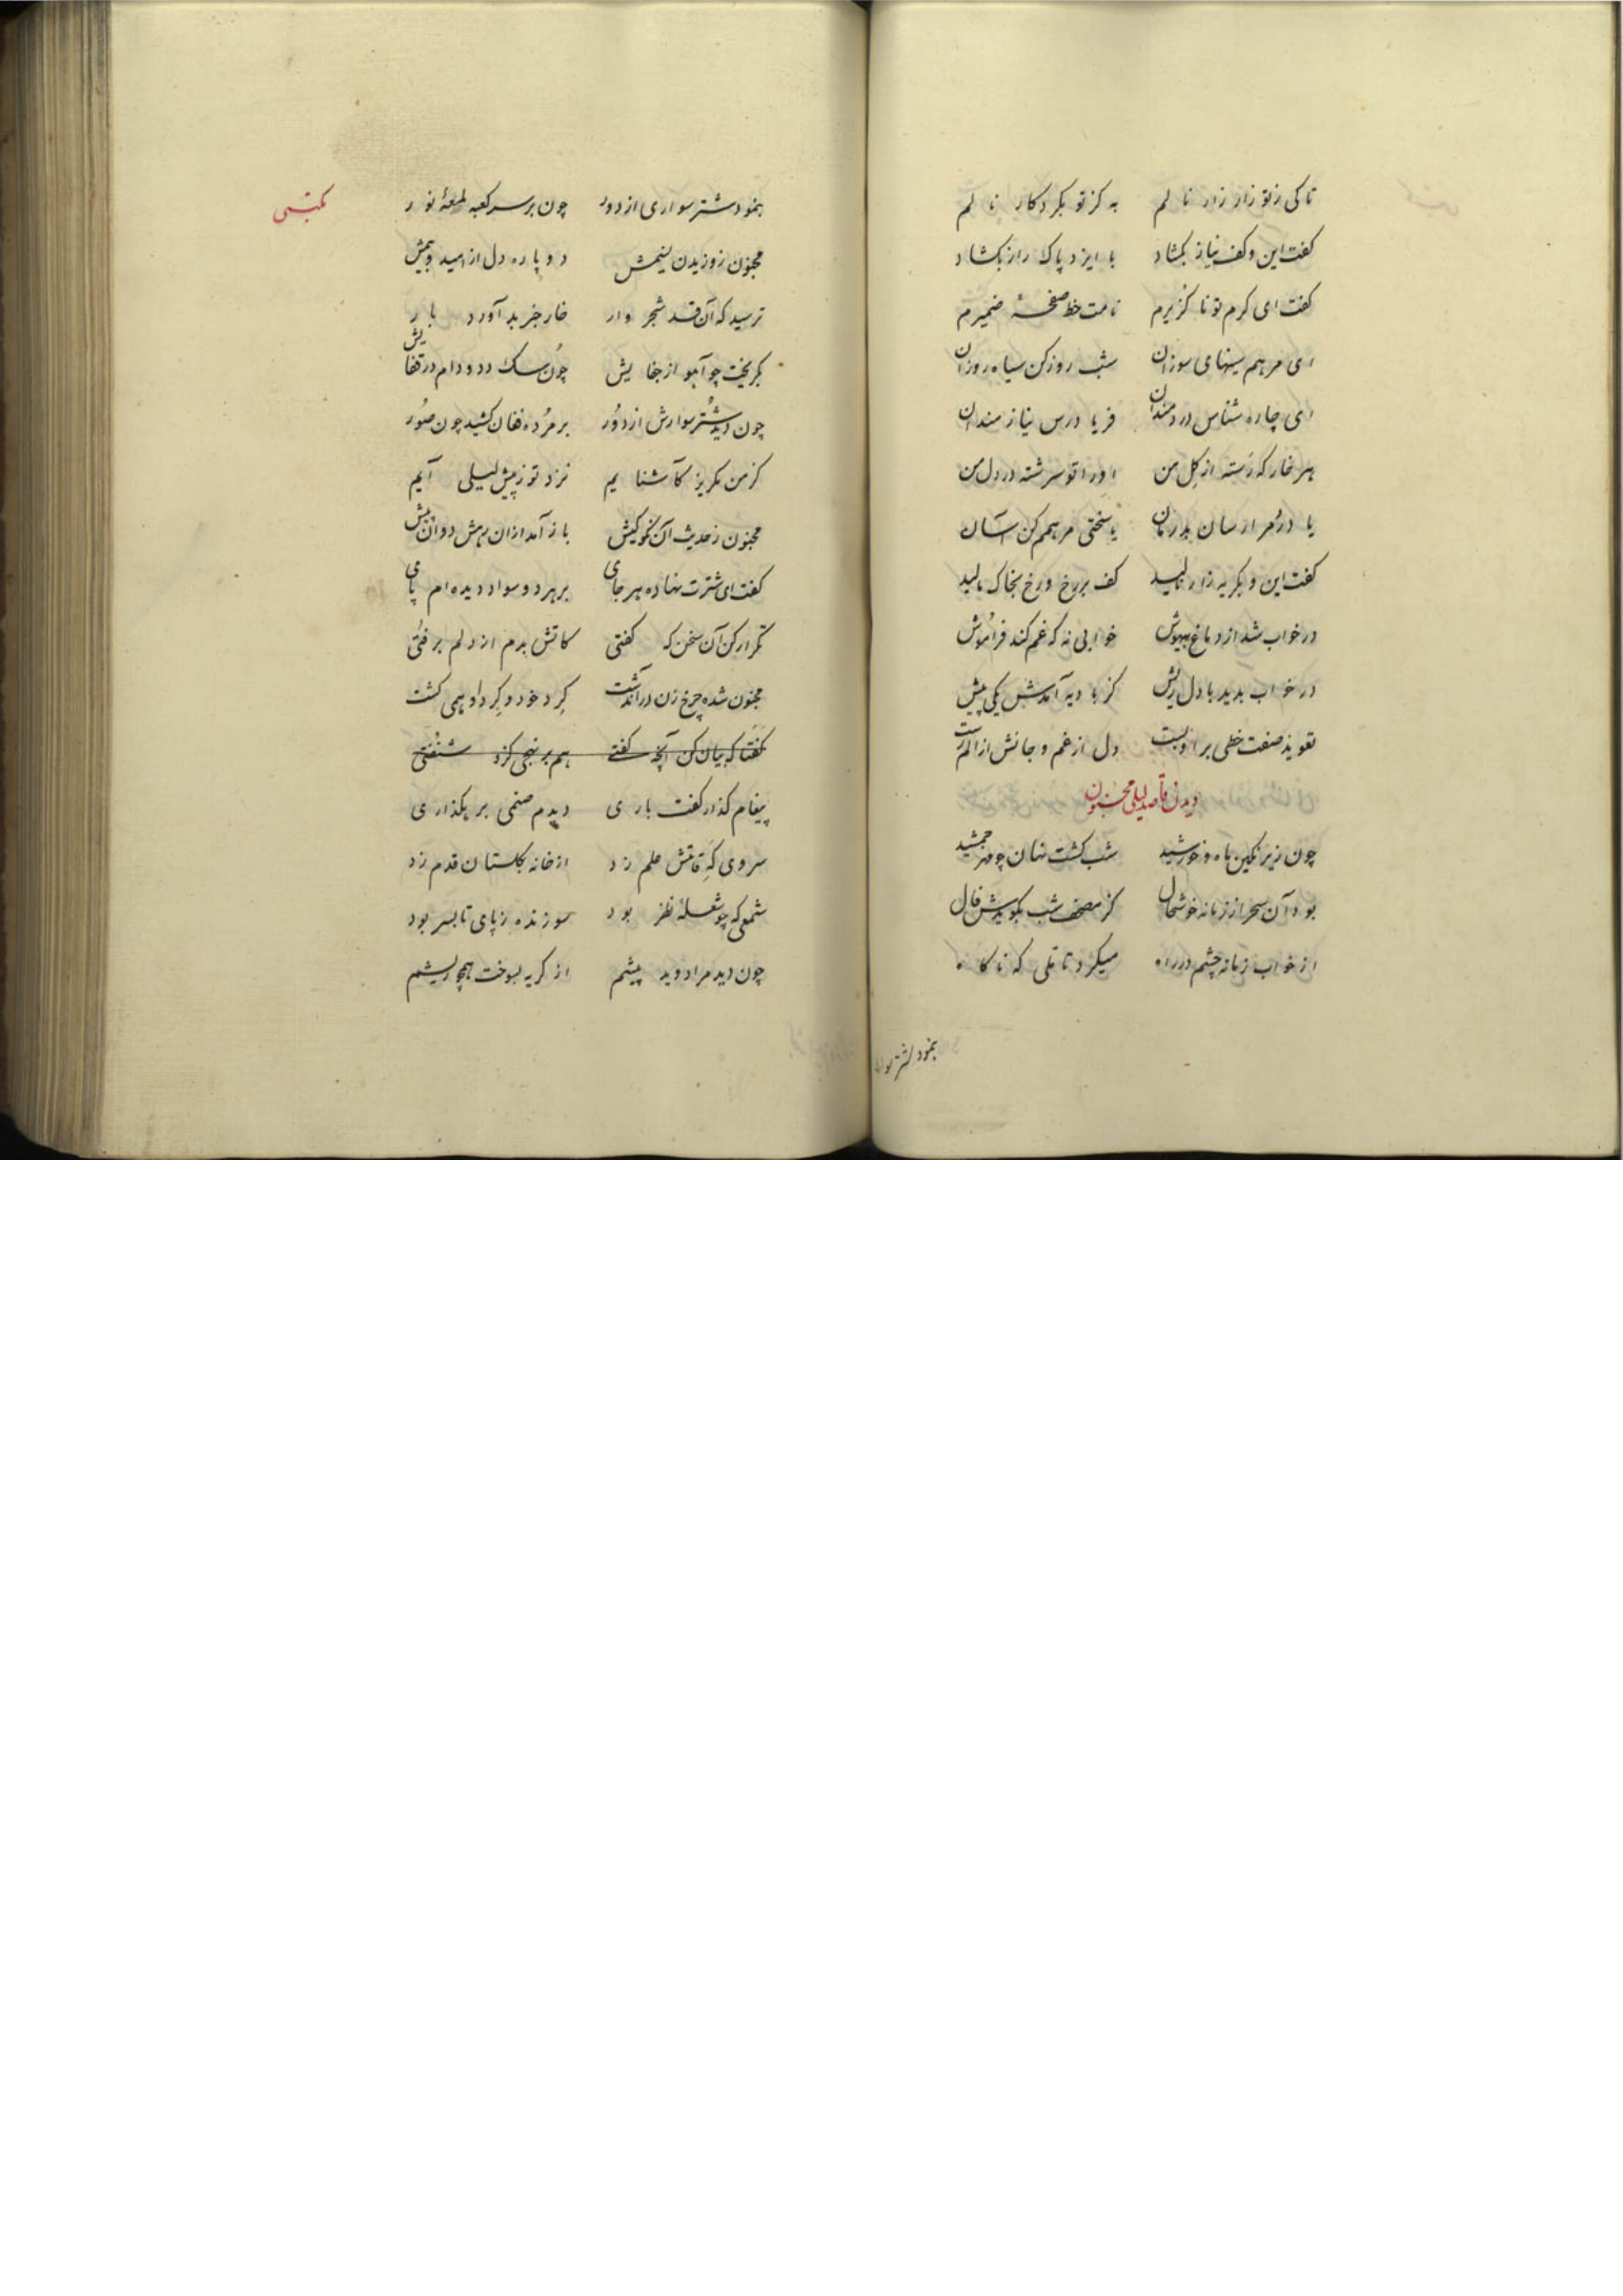 تا کی ز تو زار زار نالم به کز تو بکردکار نالم
کفت این و کف نیاز بکشاد با ایزد پاک راز بکشاد
کفت ای کرم تو ناکزیرم نامت خط صفحهٔ ضمیرم
ای مرهم سینهای سوزان شب روز کن سیاه روزان
ای چاره شناس دردمندان فریادرس نیازمندان
هر خار که رسته از کل من او را تو سرشته در دل من
یا درد مرا رسان بدرمان یا سختی مرهمم کن آسان
کفت این و بکریه زار نالید کف بر رخ و رخ بخاک مالید
در خواب شد از دماغ بیهوش خوابی نه که غم کند فراموش
در خواب بدید با دل ریش کز بادیه آمدش یکی پیش
تعویذ صفت خطی بر او بست دل از غم و جانش از الم رست
دیدن قاصد لیلی مجنون
چون زیر نکین ماه و خورشید شب کشت نهان چو مهر جمشید
بود آن سحر از زمانه خوشحال کز مصحف شب بکویدش فال
از خواب زمانه چشم در راه میکرد تاملی که ناکاه
بنمود شترسوار
مکتبی
بنمود شترسواری از دور چون بر سر کعبه لمعهٔ نور
مجنون ز وزیدن نسیمش دو پاره دل از امید و بیمش
ترسید که آن قد شجروار خار خبر بد آورد بار
بکریخت چو آهو از جفایش چون سک دد و دام در قفایش
چون دید شترسوارش از دور بر مرده فغان کشید چون صور
کز من مکریز کآشنایم نزد تو ز پیش لیلی آیم
مجنون ز حدیث آن نکوکیش باز آمد از آن رهش دوان پیش
کفت ای شترت نهاده هر جای بر هر دو سواد دیده‌ام پای
تکرار کن آن سخن که کفتی کاتش بدم از دلم برفتی
مجنون شده چرخ زن در آن دشت کرد خود و کرد او همی کشت
کفتا که بیان کن آنچه کفتی هم بر نهجی کزو شنفتی
پیغام کذار کفت باری دیدم صنمی بر هکذاری
سروی که قامتش علم زد از خانه بکلستان قدم زد
شمعی که چو شعلهٔ نظر بود سوزنده ز پای تا بسر بود
چون دید مرا دوید پیشم از کریه بسوخت همچو ریشم